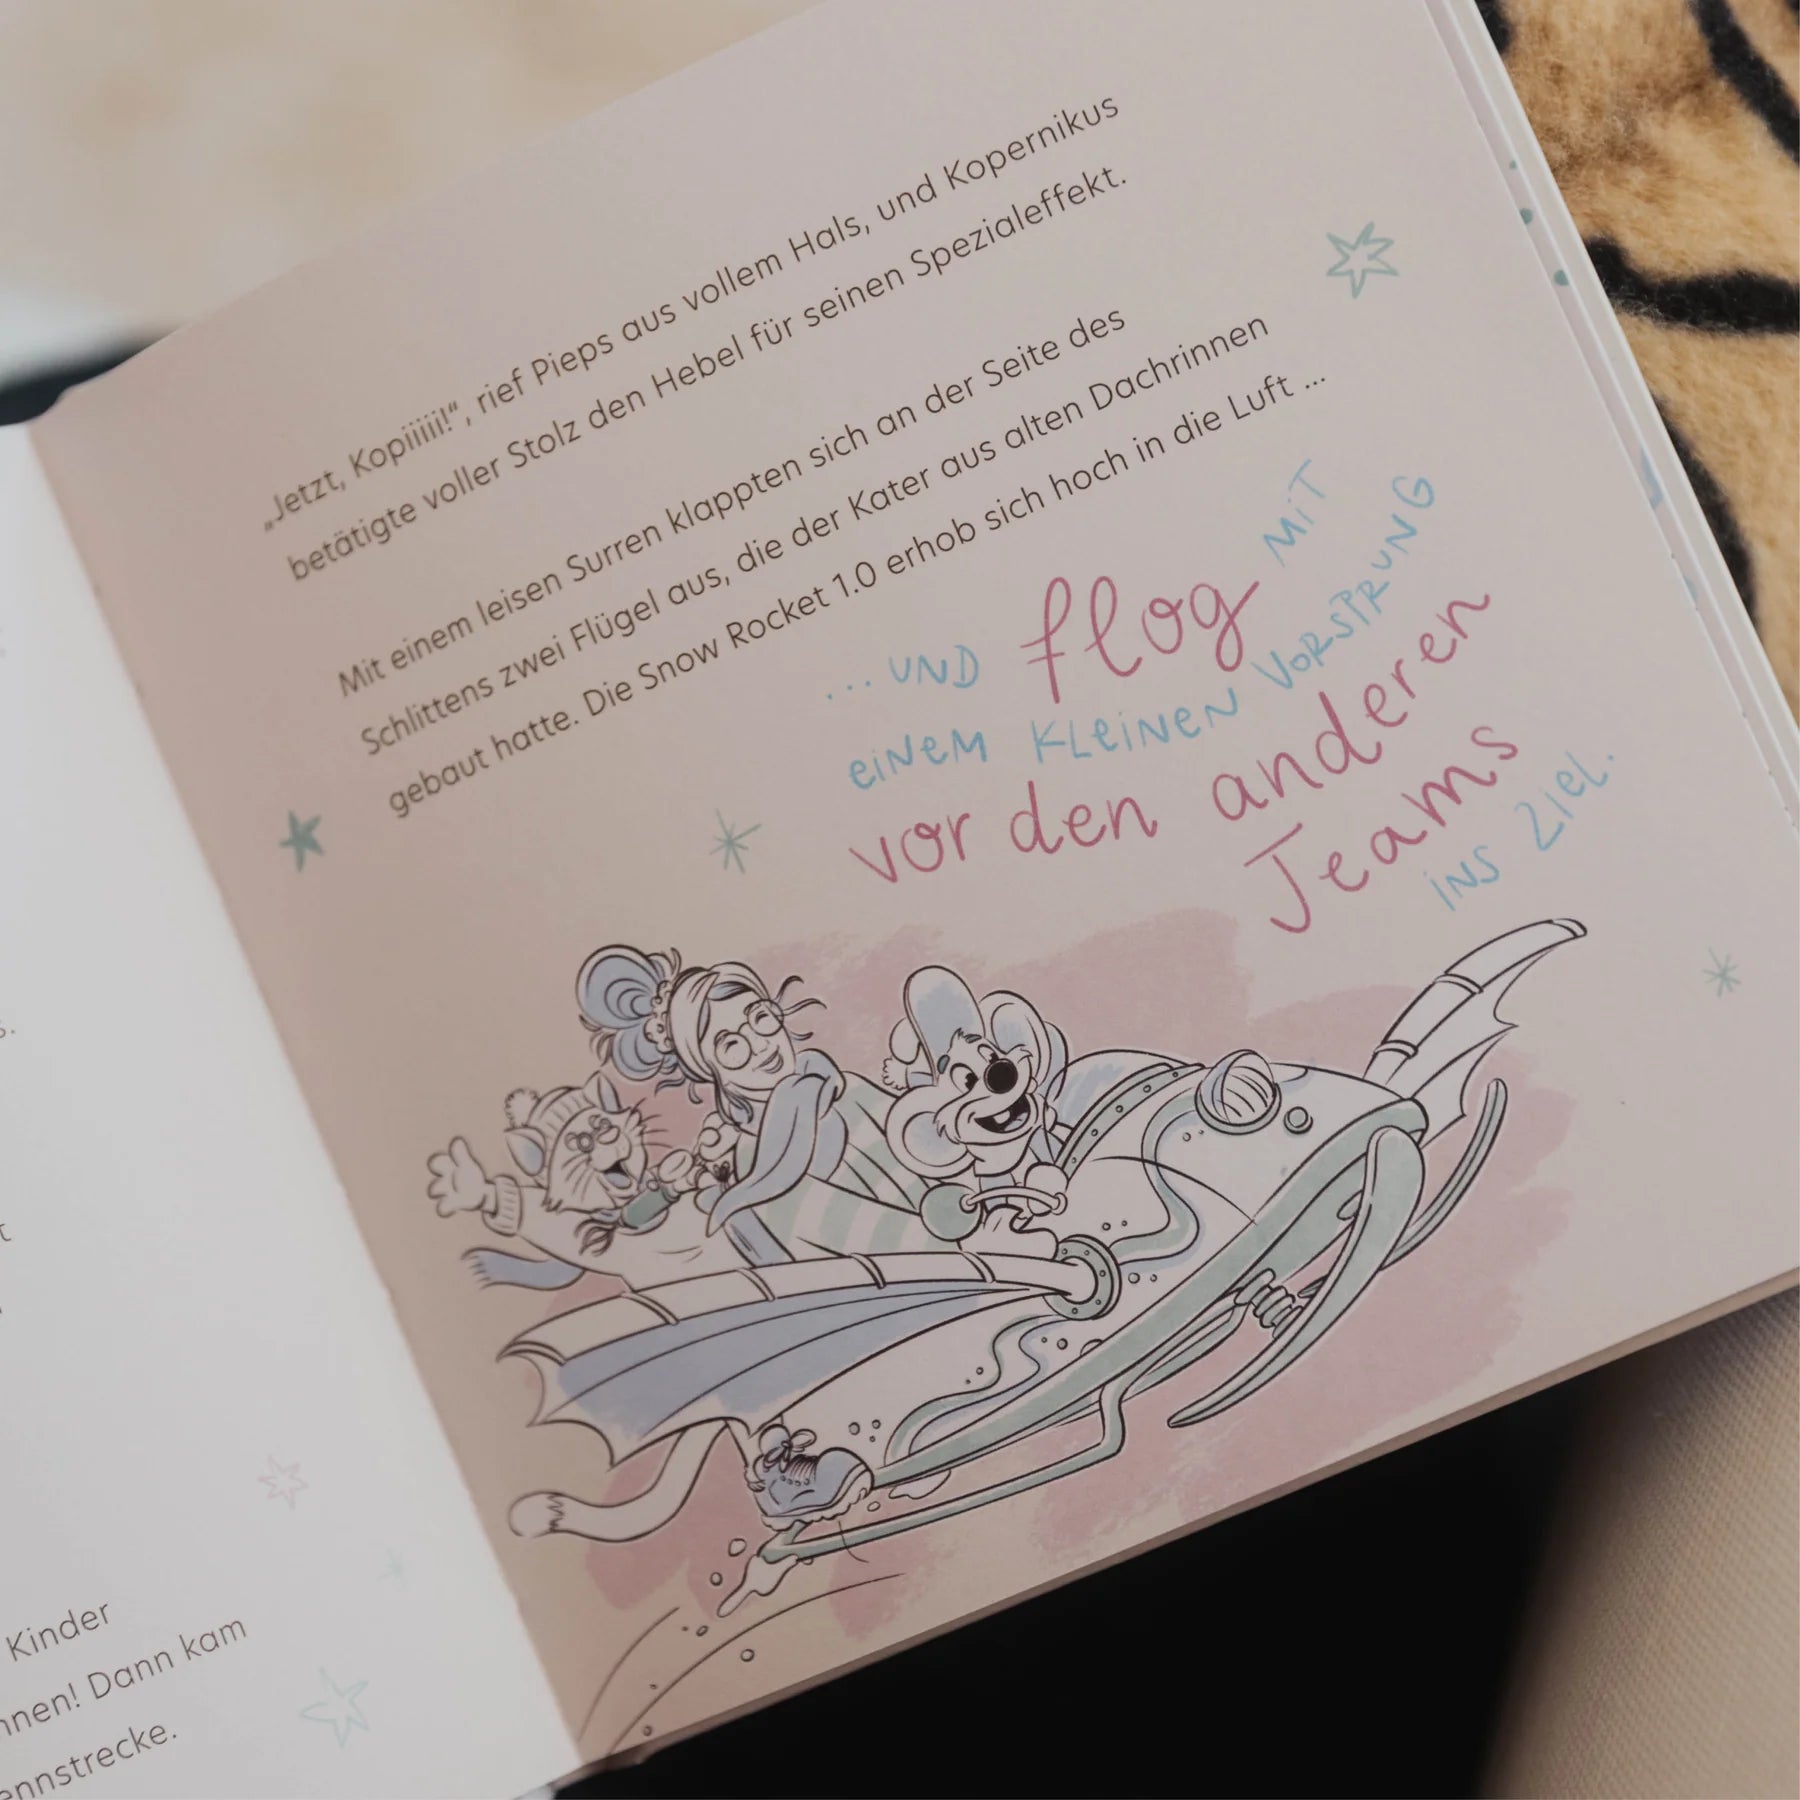 Kinder
nnen! Dann kam
ennstrecke.
„Jetzt, Kopiiiiii!“, rief Pieps aus vollem Hals, und Kopernikus
betätigte voller Stolz den Hebel für seinen Spezialeffekt.
Mit einem leisen Surren klappten sich an der Seite des
Schlittens zwei Flügel aus, die der Kater aus alten Dachrinnen
gebaut hatte. Die Snow Rocket 1.0 erhob sich hoch in die Luft ...
...UND flog MiT
eiNeM KLeiNeN VORSPRUNG
vor den anderen
Teams
iNS Ziel.